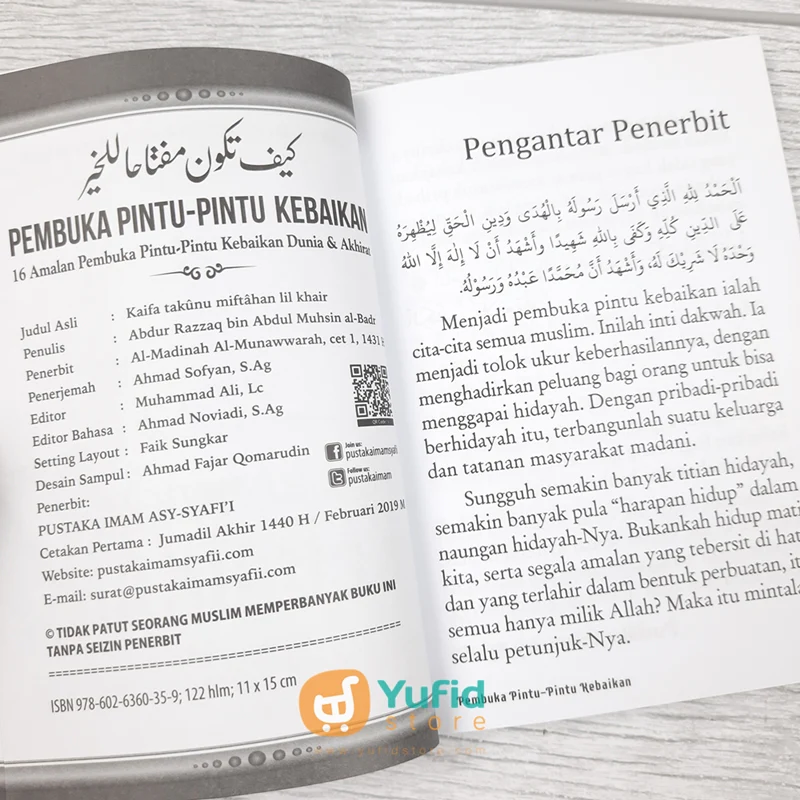 كيف تكون مفتاحا للخير
PEMBUKA PINTU-PINTU KEBAIKAN
16 Amalan Pembuka Pintu-Pintu Kebaikan Dunia & Akhirat
Judul Asli : Kaifa takûnu miftâhan lil khair
Penulis : Abdur Razzaq bin Abdul Muhsin al-Badr
Penerbit : Al-Madinah Al-Munawwarah, cet 1, 1431 H
Penerjemah : Ahmad Sofyan, S.Ag
Editor : Muhammad Ali, Lc
Editor Bahasa : Ahmad Noviadi, S.Ag
Setting Layout : Faik Sungkar
Desain Sampul : Ahmad Fajar Qomarudin
QR Code
Join us:
pustakaimamsyafii
Follow us:
pustakaimam
Penerbit:
PUSTAKA IMAM ASY-SYAFI'I
Cetakan Pertama : Jumadil Akhir 1440 H / Februari 2019 M
Website: pustakaimamsyafii.com
E-mail: surat@pustakaimamsyafii.com
© TIDAK PATUT SEORANG MUSLIM MEMPERBANYAK BUKU INI
TANPA SEIZIN PENERBIT
ISBN 978-602-6360-35-9; 122 hlm; 11 x 15 cm
Pengantar Penerbit
اَلْحَمْدُ لِلّٰهِ الَّذِي أَرْسَلَ رَسُولَهُ بِالْهُدَى وَدِينِ الْحَقِّ لِيُظْهِرَهُ
عَلَى الدِّينِ كُلِّهِ وَكَفَى بِاللّٰهِ شَهِيدًا وَأَشْهَدُ أَنْ لَا إِلٰهَ إِلَّا اللّٰهُ
وَحْدَهُ لَا شَرِيكَ لَهُ، وَأَشْهَدُ أَنَّ مُحَمَّدًا عَبْدُهُ وَرَسُولُهُ.
Menjadi pembuka pintu kebaikan ialah
cita-cita semua muslim. Inilah inti dakwah. Ia
menjadi tolok ukur keberhasilannya, dengan
menghadirkan peluang bagi orang untuk bisa
menggapai hidayah. Dengan pribadi-pribadi
berhidayah itu, terbangunlah suatu keluarga
dan tatanan masyarakat madani.
Sungguh semakin banyak titian hidayah,
semakin banyak pula "harapan hidup" dalam
naungan hidayah-Nya. Bukankah hidup mati
kita, serta segala amalan yang tebersit di hati
dan yang terlahir dalam bentuk perbuatan, it
semua hanya milik Allah? Maka itu mintala
selalu petunjuk-Nya.
Pembuka Pintu-Pintu Kebaikan
Yufid
store
www.yufidstore.com